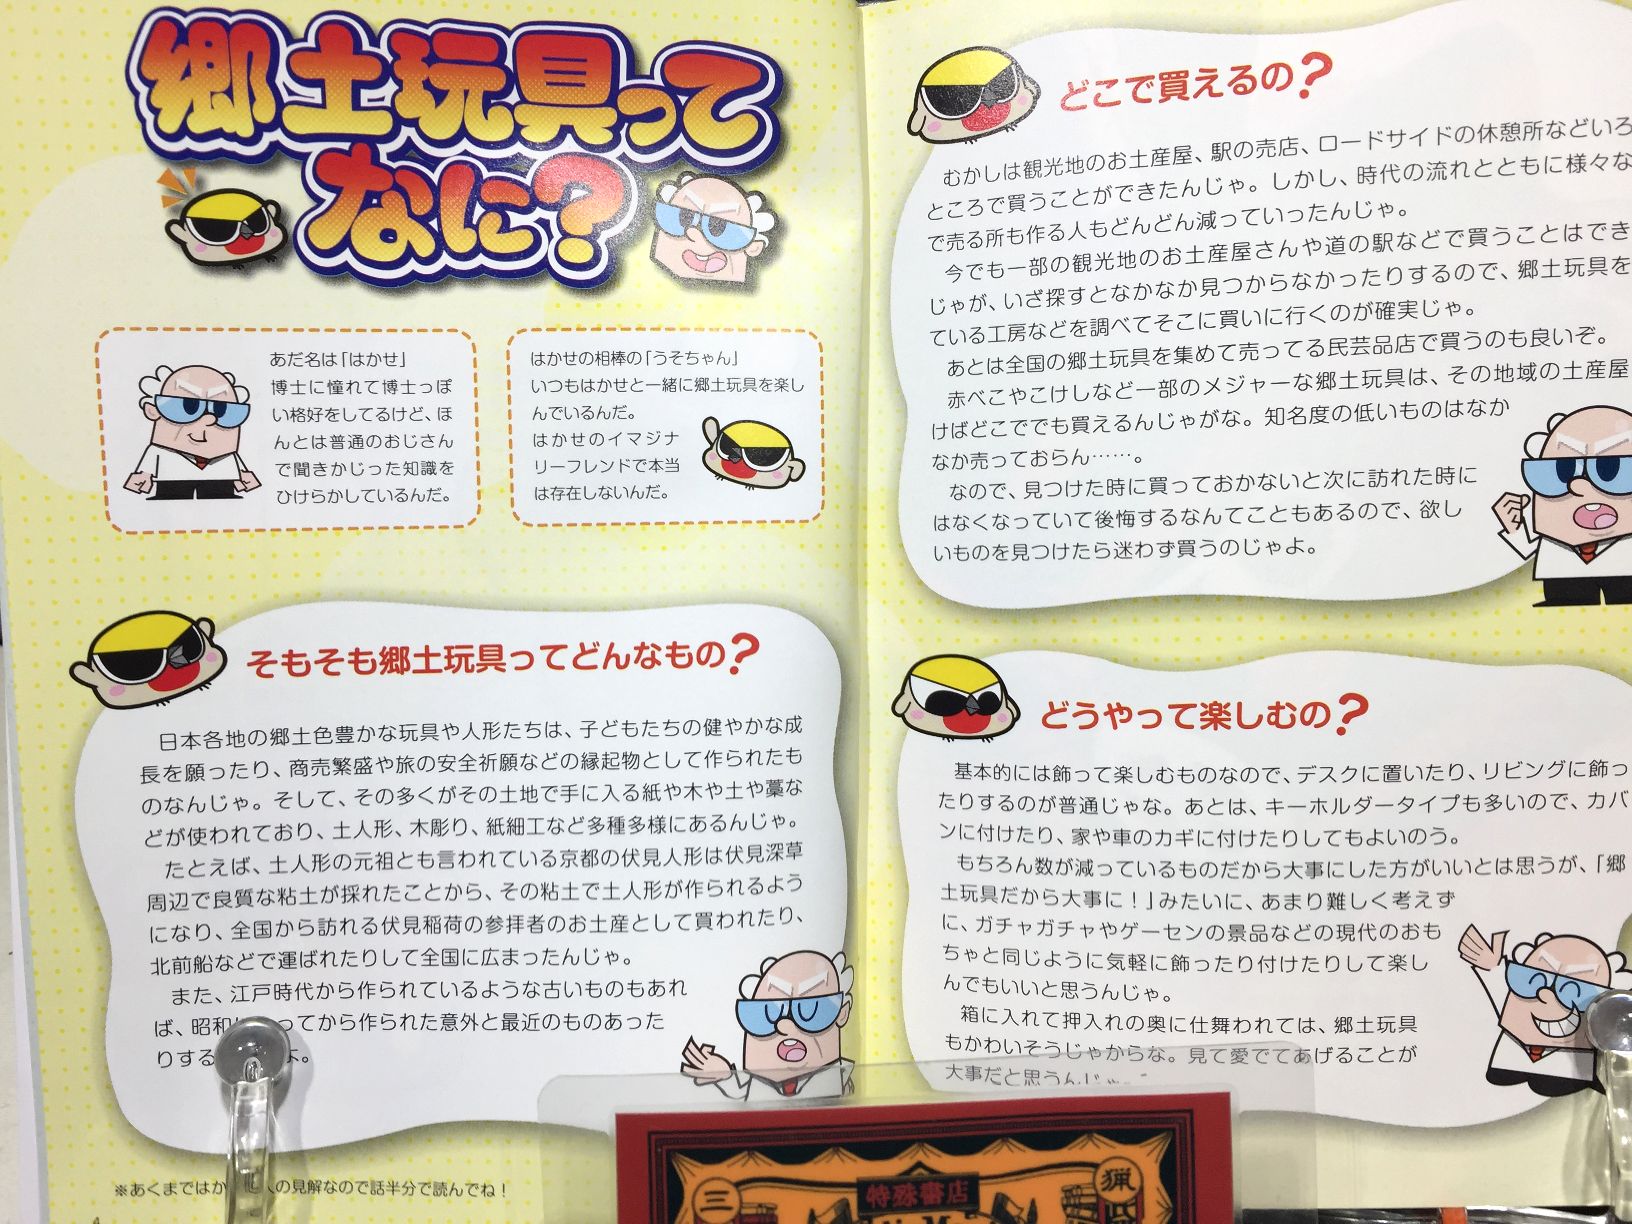 郷土玩具って
なに?
あだ名は「はかせ」
博士に憧れて博士っぽ
い格好をしてるけど、ほ
んとは普通のおじさん
で聞きかじった知識を
ひけらかしているんだ。
はかせの相棒の「うそちゃん」
いつもはかせと一緒に郷土玩具を楽し
んでいるんだ。
はかせのイマジナ
リーフレンドで本当
は存在しないんだ。
そもそも郷土玩具ってどんなもの?
日本各地の郷土色豊かな玩具や人形たちは、子どもたちの健やかな成
長を願ったり、商売繁盛や旅の安全祈願などの縁起物として作られたも
のなんじゃ。そして、その多くがその土地で手に入る紙や木や土や藁な
どが使われており、土人形、木彫り、紙細工など多種多様にあるんじゃ。
たとえば、土人形の元祖とも言われている京都の伏見人形は伏見深草
周辺で良質な粘土が採れたことから、その粘土で土人形が作られるよう
になり、全国から訪れる伏見稲荷の参拝者のお土産として買われたり、
北前船などで運ばれたりして全国に広まったんじゃ。
また、江戸時代から作られているような古いものもあれ
ば、昭和 ってから作られた意外と最近のものあった
りする よ。
※あくまではか 人の見解なので話半分で読んでね！
どこで買えるの?
むかしは観光地のお土産屋、駅の売店、ロードサイドの休憩所などいろ
ところで買うことができたんじゃ。しかし、時代の流れとともに様々な
で売る所も作る人もどんどん減っていったんじゃ。
今でも一部の観光地のお土産屋さんや道の駅などで買うことはでき
じゃが、いざ探すとなかなか見つからなかったりするので、郷土玩具を
ている工房などを調べてそこに買いに行くのが確実じゃ。
あとは全国の郷土玩具を集めて売ってる民芸品店で買うのも良いぞ。
赤べこやこけしなど一部のメジャーな郷土玩具は、その地域の土産屋
けばどこででも買えるんじゃがな。知名度の低いものはなか
なか売っておらん……。
なので、見つけた時に買っておかないと次に訪れた時に
はなくなっていて後悔するなんてこともあるので、欲し
いものを見つけたら迷わず買うのじゃよ。
どうやって楽しむの?
基本的には飾って楽しむものなので、デスクに置いたり、リビングに飾っ
たりするのが普通じゃな。あとは、キーホルダータイプも多いので、カバ
ンに付けたり、家や車のカギに付けたりしてもよいのう。
もちろん数が減っているものだから大事にした方がいいとは思うが、「郷
土玩具だから大事に！」みたいに、あまり難しく考えず
に、ガチャガチャやゲーセンの景品などの現代のおも
ちゃと同じように気軽に飾ったり付けたりして楽し
んでもいいと思うんじゃ。
箱に入れて押入れの奥に仕舞われては、郷土玩具
もかわいそうじゃからな。見て愛でてあげることが
大事だと思うんじゃ。
三
特殊書店
猟